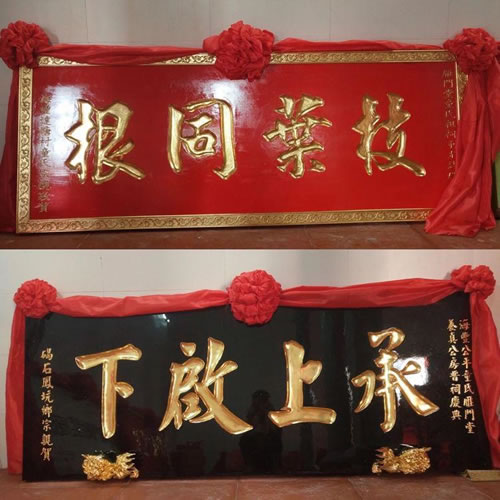 枝葉同根
承上啟下
海豐公平童氏雁門堂
養真公房晋祠慶典
碣石鳳坑鄉宗親賀